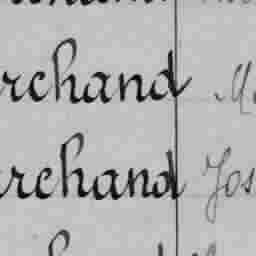 rchand M
archand Jos